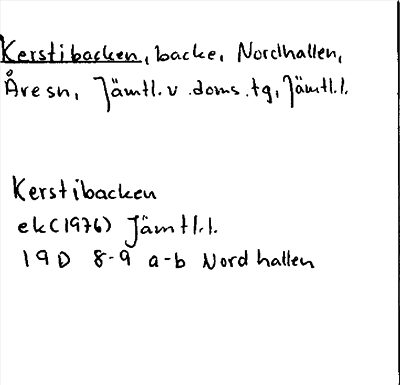 Kerstibacken, backe, Nordhallen,
Åre sn, Jämtl. v. doms. tg, Jämtl. l.
Kerstibacken
ek (1976) Jämtl. l.
19D 8-9 a-b Nordhallen